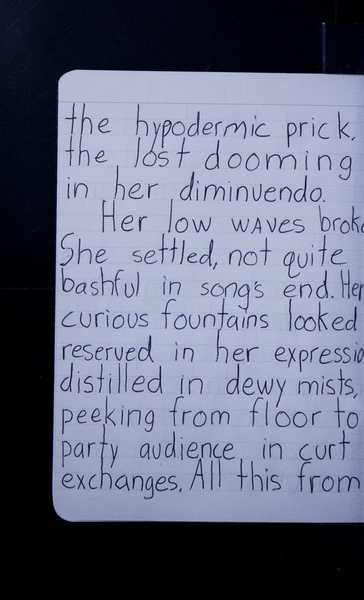 the hypodermic prick.
the lost dooming
in her diminuendo.
Her low waves
She settled, not quite
bashful in song's end. Her
curious fountains looked
reserved in her
distilled in dewy mists,
peeking from floor to
party audience in curt
exchanges. All this from